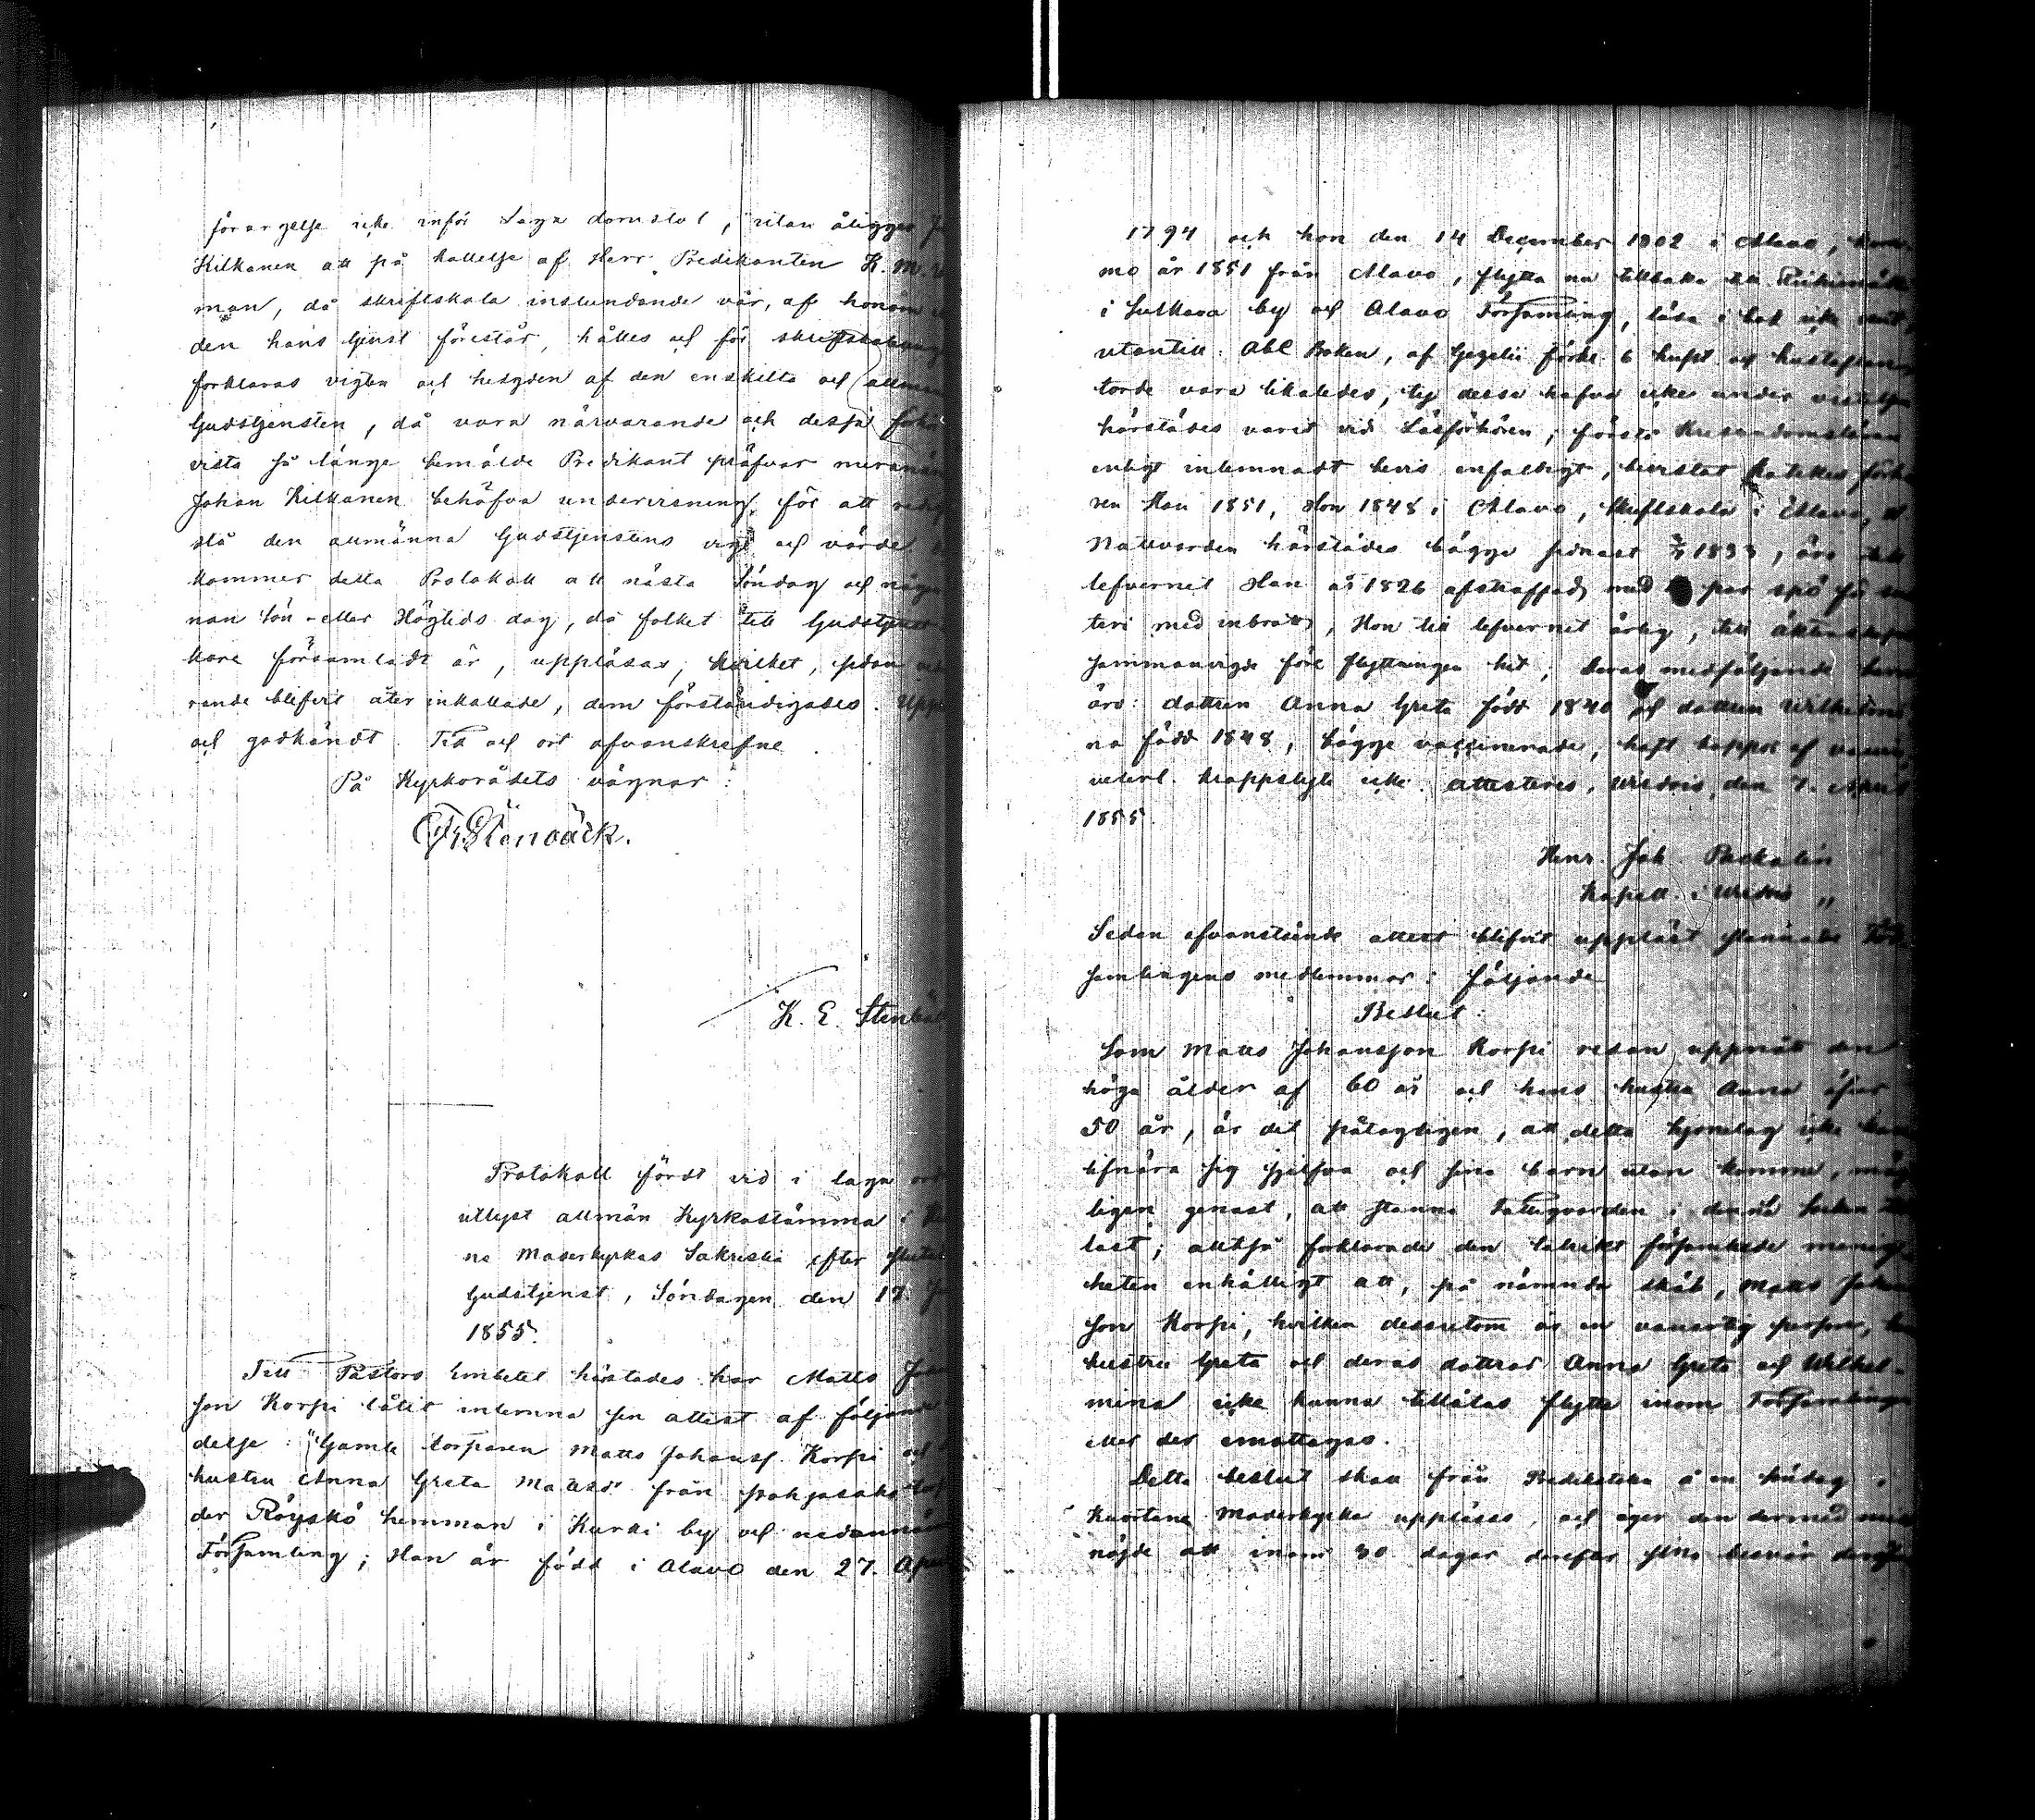 förargelse icke inför Laga domstol, utan åligger
Kilkanen att på kallelse af Herr Predikanten K. M.
man, då skriftskola instundande vår, af honom
den hans tjenst förestår, hålles och för
förklaras vigten och helgden af den enskilta och allmän
Gudstjensten, då vara närvarande och dessa
vista så länge bemälde Predikant pröfvar
Johan Kilkanen behöfva undervisning för att
stå den allmänna Gudstjenstens vigt och värde
kommer detta Protokoll att nästa Söndag och någon
nan Sön- eller Högtids dag, då folket till Gudstjenst
kare församladt är, uppläsas, hvilket, sedan
rande blifvit åter inkallade, dem förständigades. Upp
och godkändt. Tid och ort ofvanskrefne.
På Kyrkorådets vägnar:
Fr. Stenbäck.
K. E. Stenbäck
Protokoll fördt vid i laga
utlyst allmän Kyrkostämma i
ne Moderkyrkas Sakristia efter
Gudstjenst, Söndagen den 17
1855.
Till Pastors Embetet härstädes har Matts
son Korpi låtit inlemna sen attest af följande
delse: "Gamle torparen Matts Johanss. Korpi och
hustru Anna Greta Mattsdr från
der Röyskö hemman i Kurki by och nedannämn
Församling; Han är född i Alavo den 27. Apr
1794 och hon den 14 December 1802 i Alavo,
mo år 1851 från Alavo, flytta nu tillbaka till
i Sulkava by och Alavo Församling, läsa i bok icke
utantill: Abc Boken, af Gezelii förkl. 6 hufst. och hustaflan
torde vara likaledes, ty dessa hafva icke under vistelsen
härstädes varit vid Läsförhören, förstå Kristendomsläran
enligt inlemnadt bevis enfaldigt, bevistat Katekes förhö
ren Han 1851, Hon 1848 i Alavo, Skriftskola i Alavo,
Nattvarden härstädes bägge sednast 1853, äro
lefvernet Han år 1826 afstraffad med par spö för
teri med inbrott, Hon till lefvernet ärlig, till äktenskapet
sammanvigde före flyttningen hit; deras medföljande barn
äro: dottren Anna Greta född 1840 och dottren Wilhelmi
na född 1848, bägge vaccinerade, haft koppor af
veterl. krappslyte icke. Attesteras, Wirdois, den 7. April
1855.
Henr. Joh. Packalén
Kapell. i Wirdois "
Sedan ofvanstående attest blifvit uppläst stannade För
samlingens medlemmar i följande
Beslut:
Som Matts Johansson Korpi redan uppnått den
höga ålder af 60 år och hans hustru Anna öfver
50 år, är det påtagligen, att detta hjonelag icke kan
lifnära sig sjelfva och sina barn utan komme, mög
ligen genast, att stanna Fattigvården i denna Socken till
last; alltså förklarade den talrikt församlade menig
heten enhälligt att, på nämnda skäl, Matts Johans
son Korpi, hvilken dessutom är en vanartig person,
hustru Greta och deras döttrar Anna Greta och Wilhel-
mina icke kunna tillåtas flytta inom Församlingen
eller der emottagas.
Detta beslut skall från Predikstolen å en söndag i
Kuortane Moderkyrka uppläsas, och äger den dermed miss
nöjde att inom 30 dagar derefter sina besvär deröfver